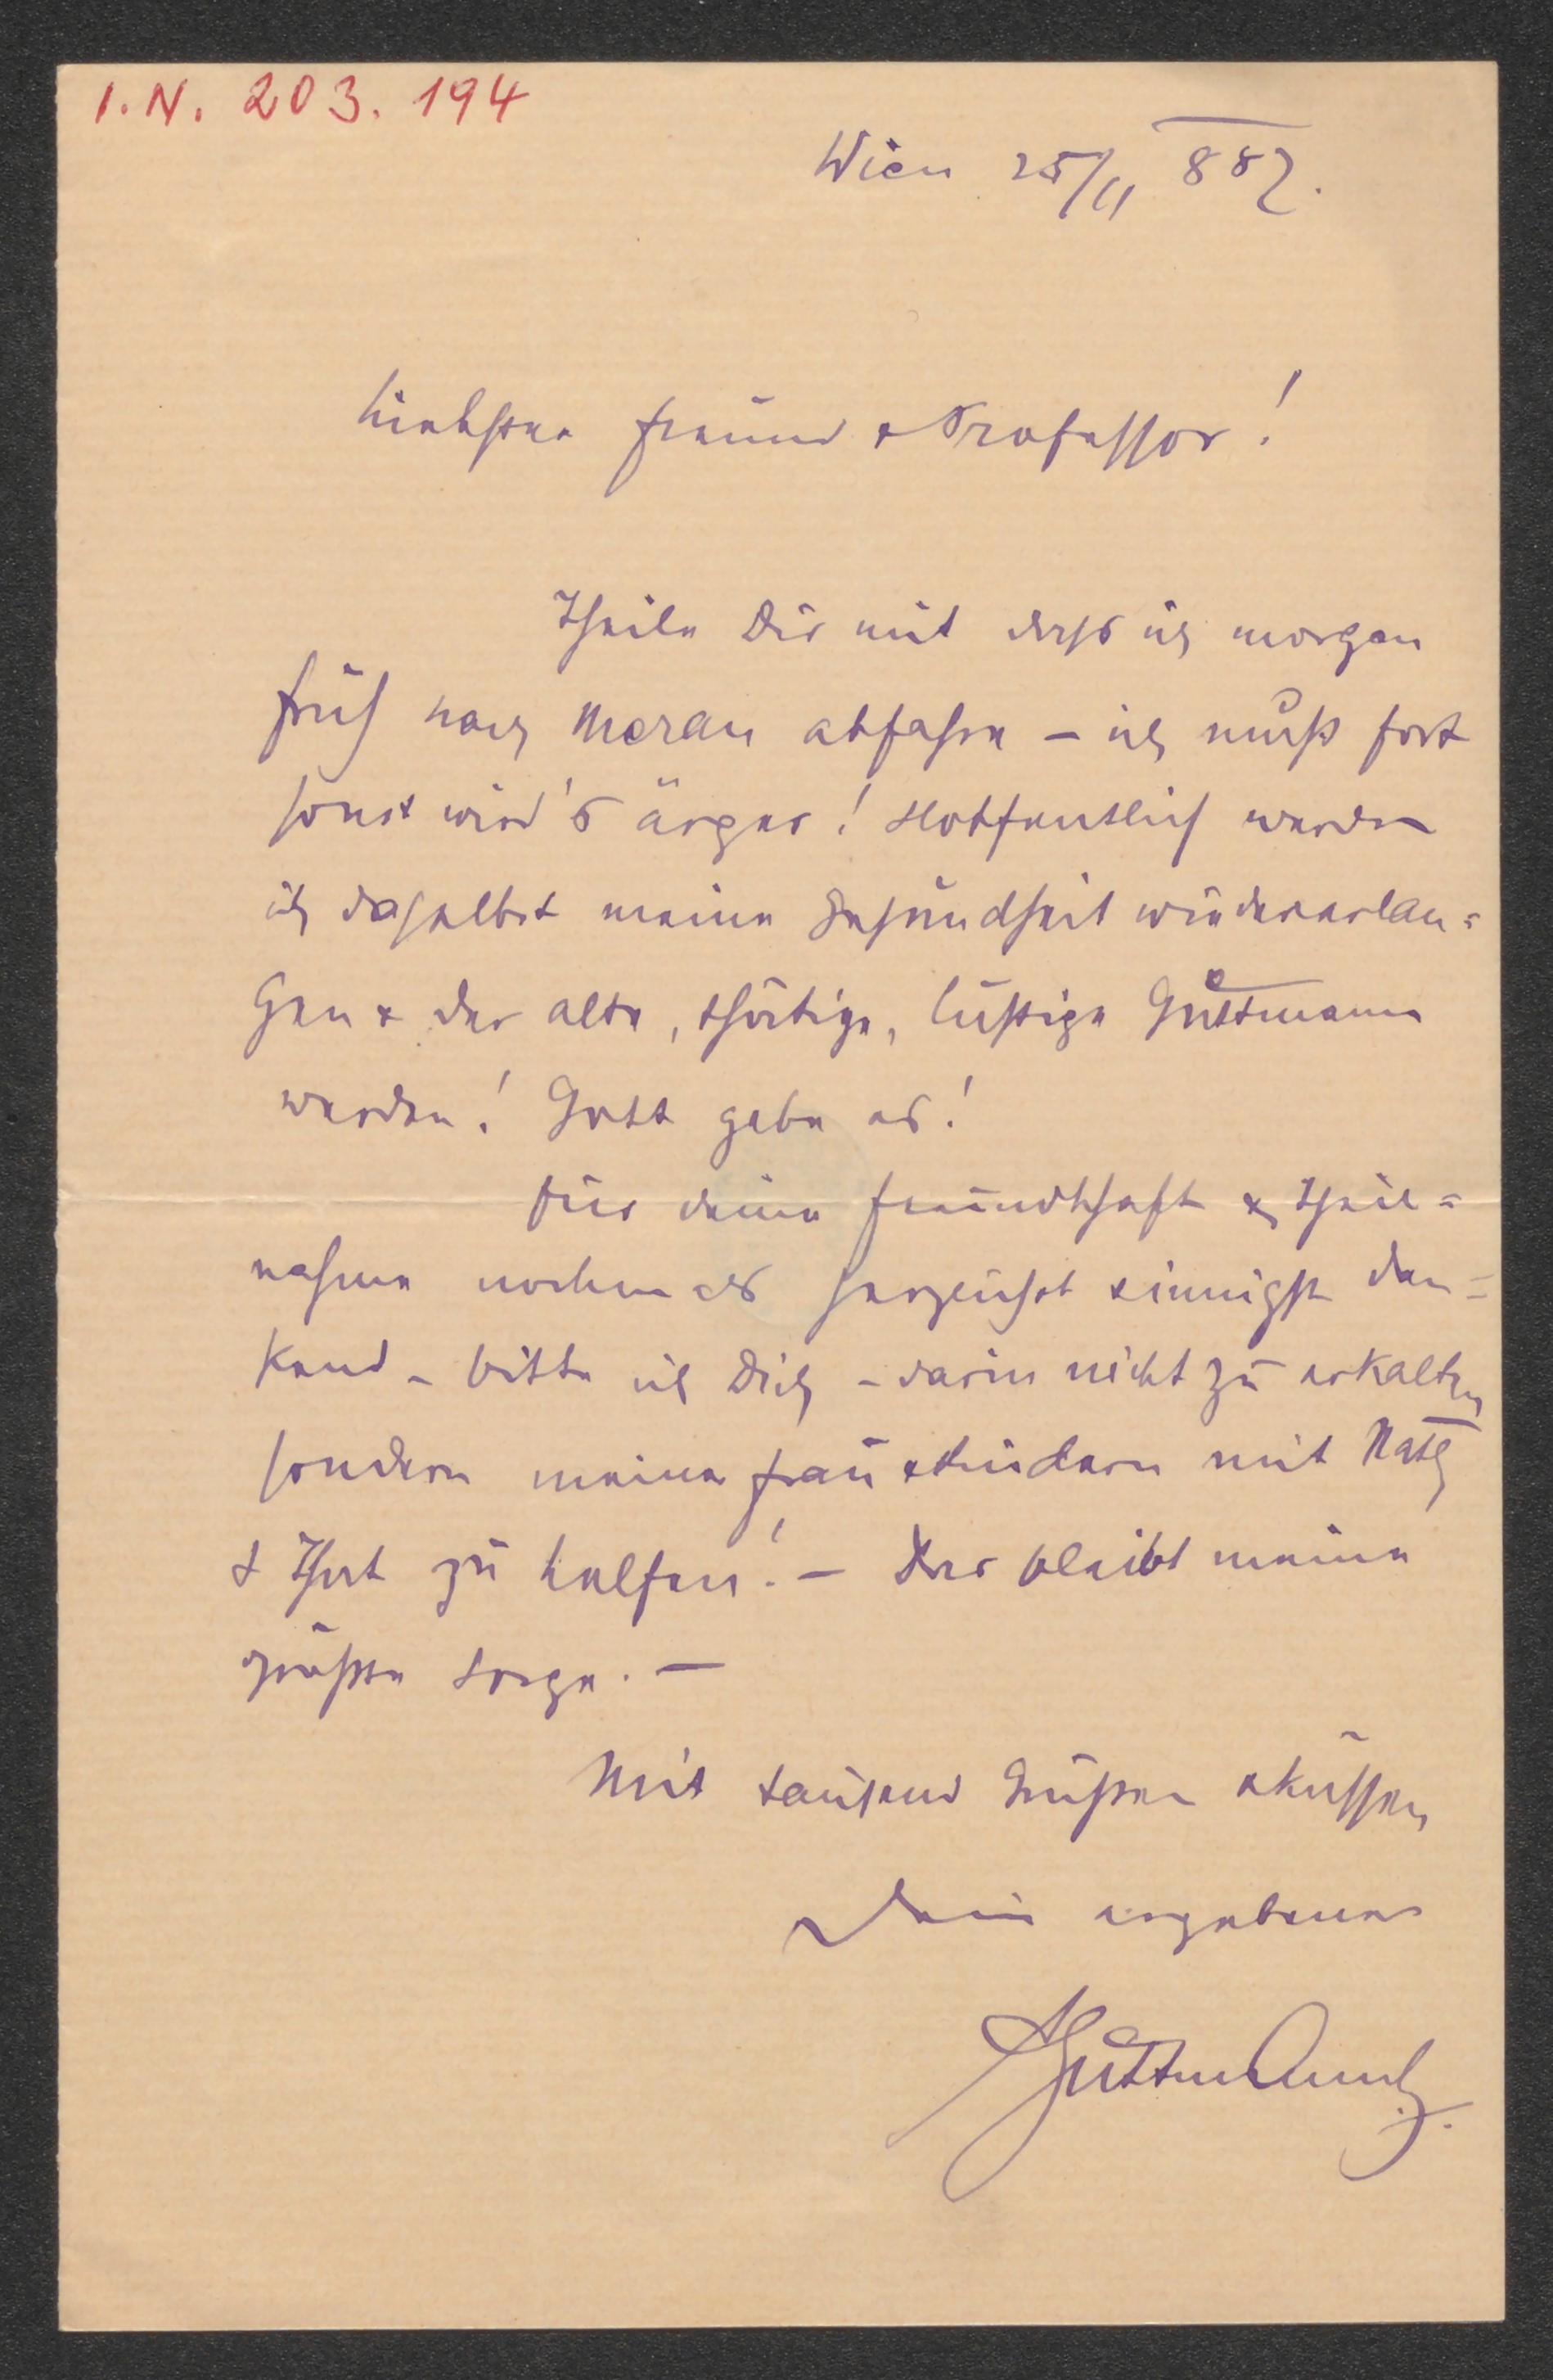 I.N. 203.194
Wien 25/11 887.
Liebster Freund & Professor!
Theile Dir mit dass ich morgen
früh nach Meran abfahre – ich muß fort
sonst wird's ärger! Hoffentlich werde
ich daselbst meine Gesundheit wiedererlan=
gen & der alte, thätige, lustige Guttmann
werden! Gott gebe es!
Für deine Freundschaft & Theil=
nahme nochmals herzlichst & innigst dan=
kend – bitte ich Dich – darin nicht zu erkalten
sondern meiner Frau & Kindern mit Rath
& That zu helfen! – Das bleibt meine
größte Sorge. –
Mit tausend Grüßen & Küssen
Dein ergebener
Guttmann